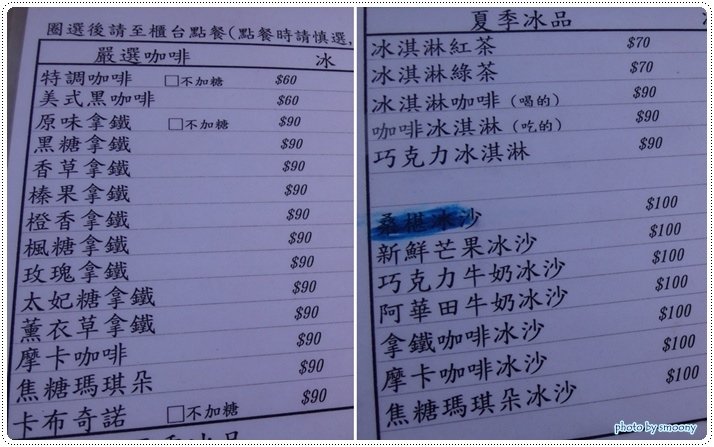 圈選後請至櫃台點餐(點餐時請慎選,
嚴選咖啡 冰
特調咖啡 □不加糖 $60
美式黑咖啡 $60
原味拿鐵 □不加糖 $90
黑糖拿鐵 $90
香草拿鐵 $90
榛果拿鐵 $90
橙香拿鐵 $90
楓糖拿鐵 $90
玫瑰拿鐵 $90
太妃糖拿鐵 $90
薰衣草拿鐵 $90
摩卡咖啡 $90
焦糖瑪琪朵 $90
卡布奇諾 □不加糖 $90
夏季冰品
冰淇淋紅茶 $70
冰淇淋綠茶 $70
冰淇淋咖啡(喝的) $90
咖啡冰淇淋(吃的) $90
巧克力冰淇淋 $90
桑椹冰沙 $100
新鮮芒果冰沙 $100
巧克力牛奶冰沙 $100
阿華田牛奶冰沙 $100
拿鐵咖啡冰沙 $100
摩卡咖啡冰沙 $100
焦糖瑪琪朵冰沙 $100
photo by smoony